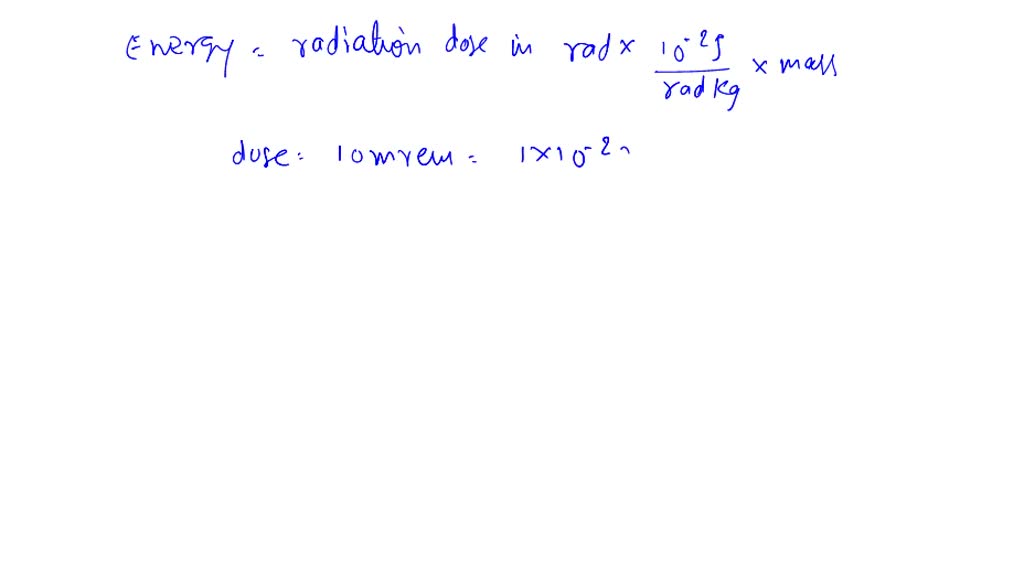 Energy = radiation dose in rad × 10⁻² J / rad kg × mass
dose = 10 mrem = 1×10⁻²